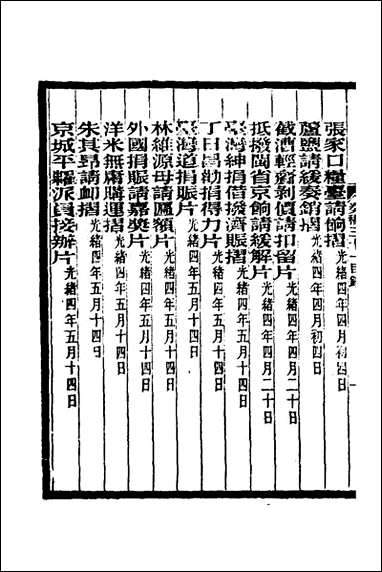 張家口糧臺請餉摺 光緒四年四月初四日
蘆鹽請緩奏銷摺 光緒四年四月初四日
截漕輕齎剝價請扣留片 光緒四年四月二十日
抵撥閩省京餉請緩解片 光緒四年四月二十日
臺海紳捐借撥濟賬摺 光緒四年五月十四日
丁日昌勸捐得力片 光緒四年五月十四日
臺海道捐賑片 光緒四年五月十四日
林維源母請匾額片 光緒四年五月十四日
外國捐賑請嘉獎片 光緒四年五月十四日
洋米無庸購運摺 光緒四年五月十四日
朱其昂請卹摺 光緒四年五月十四日
京城平糶派員接辦片 光緒四年五月十四日